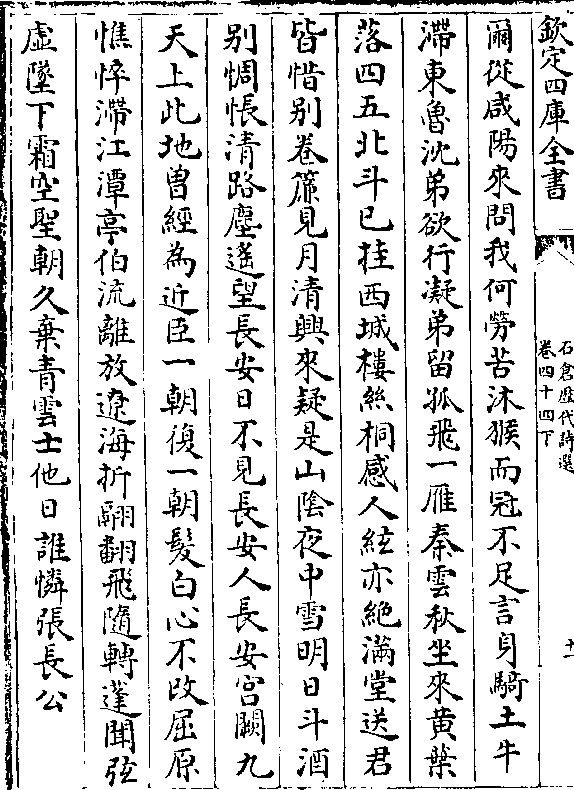 欽定四庫全書
石倉歴代詩選
卷四十四下
十一
爾從咸陽來問我何勞苦沐猴而冠不足言身騎土牛
滯東魯沈弟欲行凝弟留孤飛一雁秦雲秋坐來黄葉
落四五北斗已挂西城樓絲桐感人絃亦絶滿堂送君
皆惜别卷簾見月清興來疑是山隂夜中雪明日斗酒
别惆悵清路塵遥望長安日不見長安人長安宫闕九
天上此地曽經為近臣一朝復一朝髪白心不改屈原
憔悴滯江潭亭伯流離放遼海折翮翻飛隨轉蓬聞弦
虛墜下霜空聖朝久棄青雲士他日誰憐張長公